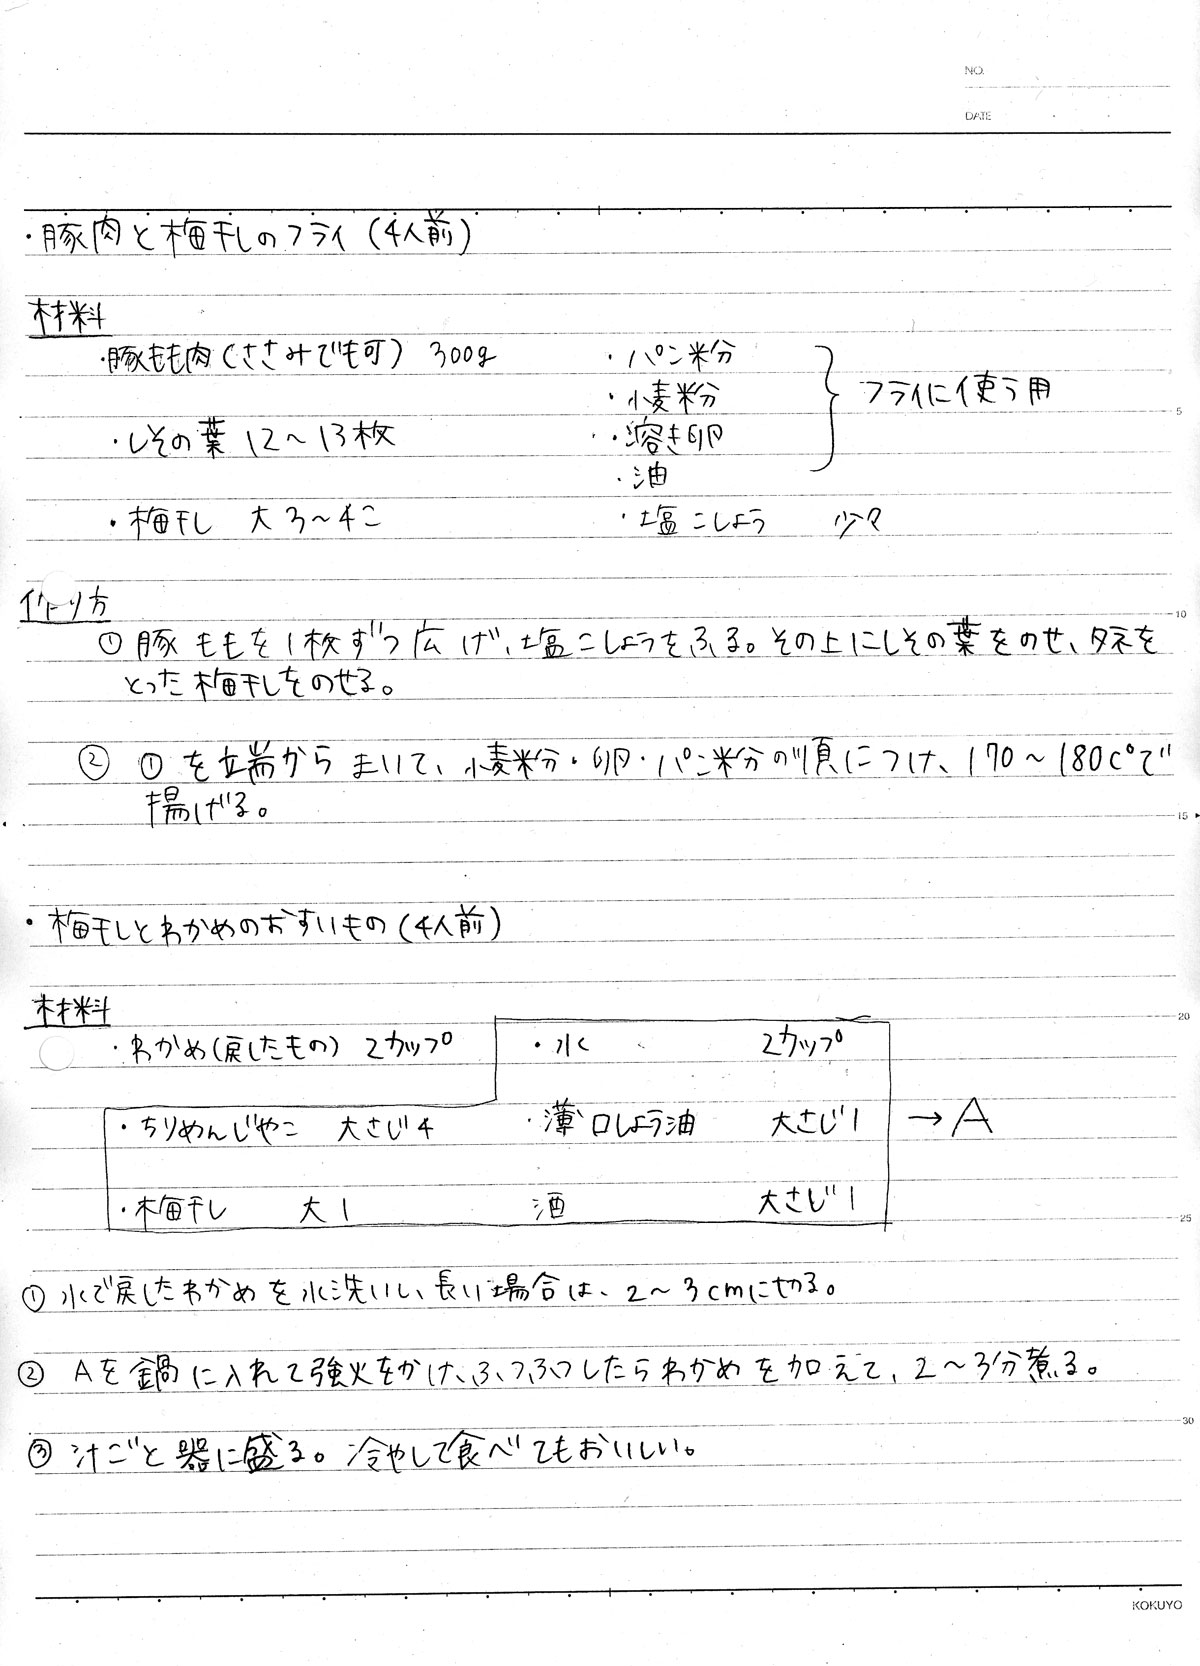 NO.
DATE
・豚肉と梅干しのフライ(4人前)
材料
・豚もも肉(ささみでも可) 300g ・パン粉
・小麦粉 フライに使う用
・しその葉 12〜13枚 ・溶き卵
・油
・梅干し 大3〜4こ ・塩こしょう 少々
作り方
① 豚ももを1枚ずつ広げ、塩こしょうをふる。その上にしその葉をのせ、タネを
とった梅干しをのせる。
② ①を端からまいて、小麦粉・卵・パン粉の順につけ、170〜180C°で
揚げる。
・梅干しとわかめのおすいもの(4人前)
材料
・わかめ(戻したもの) 2カップ ・水 2カップ
・ちりめんじゃこ 大さじ4 ・薄口しょう油 大さじ1 →A
・梅干し 大1 酒 大さじ1
① 水で戻したわかめを水洗いし、長い場合は、2〜3cmに切る。
② Aを鍋に入れて強火をかけ、ふつふつしたらわかめを加えて、2〜3分煮る。
③ 汁ごと器に盛る。冷やして食べてもおいしい。
5
10
15
20
25
30
KOKUYO